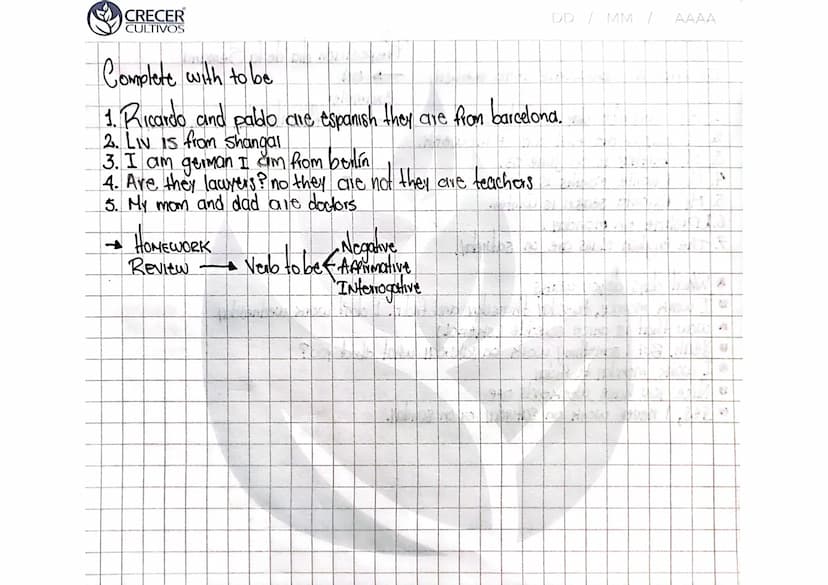 CRECER
CULTIVOS
DD / MM / AAAA
Complete with to be
1. Ricardo and pablo are espanish they are from barcelona.
2. Liv is from Shangai
3. I am german I am from berlín
4. Are they lawyers? no they are not they are teachers
5. My mom and dad are doctors
→ HOMEWORK
REVIEW → Verb to be { Negative
Affirmative
Interrogative